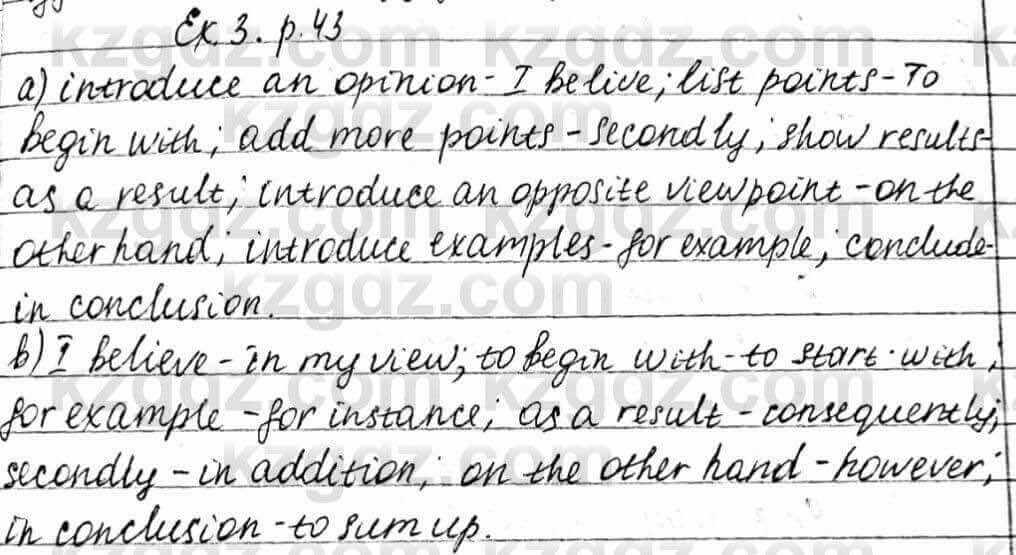 Ex. 3. p. 43
a) introduce an opinion - I belive; list points - To
begin with; add more points - secondly; show results -
as a result; introduce an opposite viewpoint - on the
other hand; introduce examples - for example; conclude -
in conclusion.
b) I believe - in my view; to begin with - to start with;
for example - for instance; as a result - consequently;
secondly - in addition; on the other hand - however;
in conclusion - to sum up.